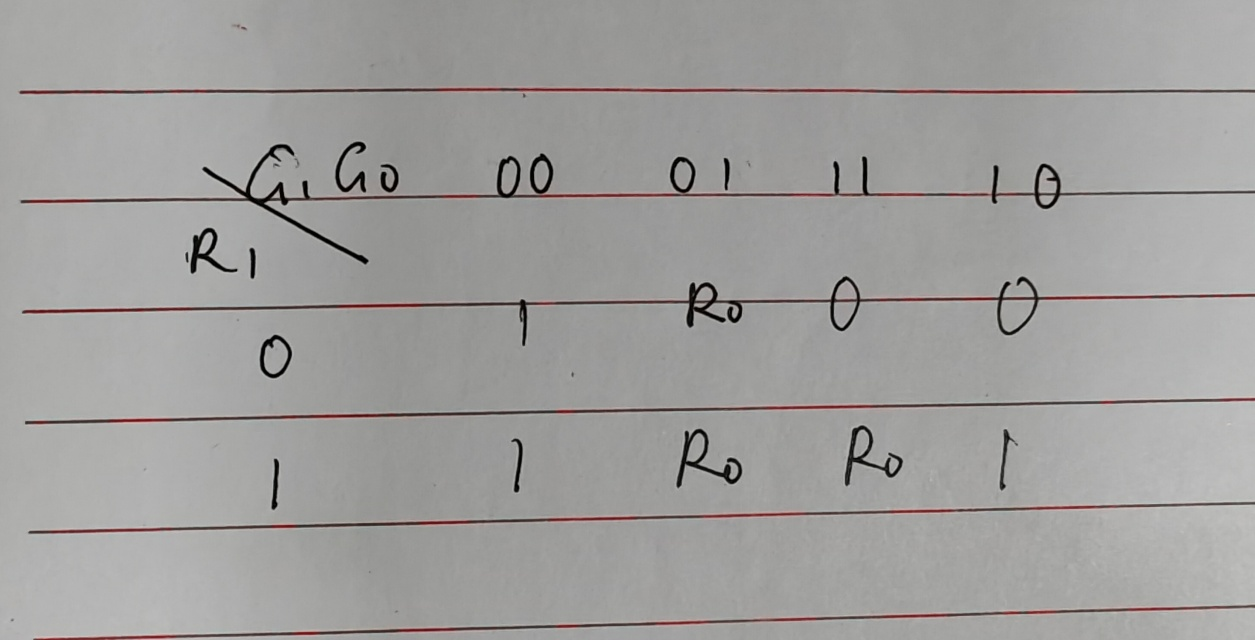 G1 G0 00 01 11 10
R1
0 1 R0 0 0
1 1 R0 R0 1